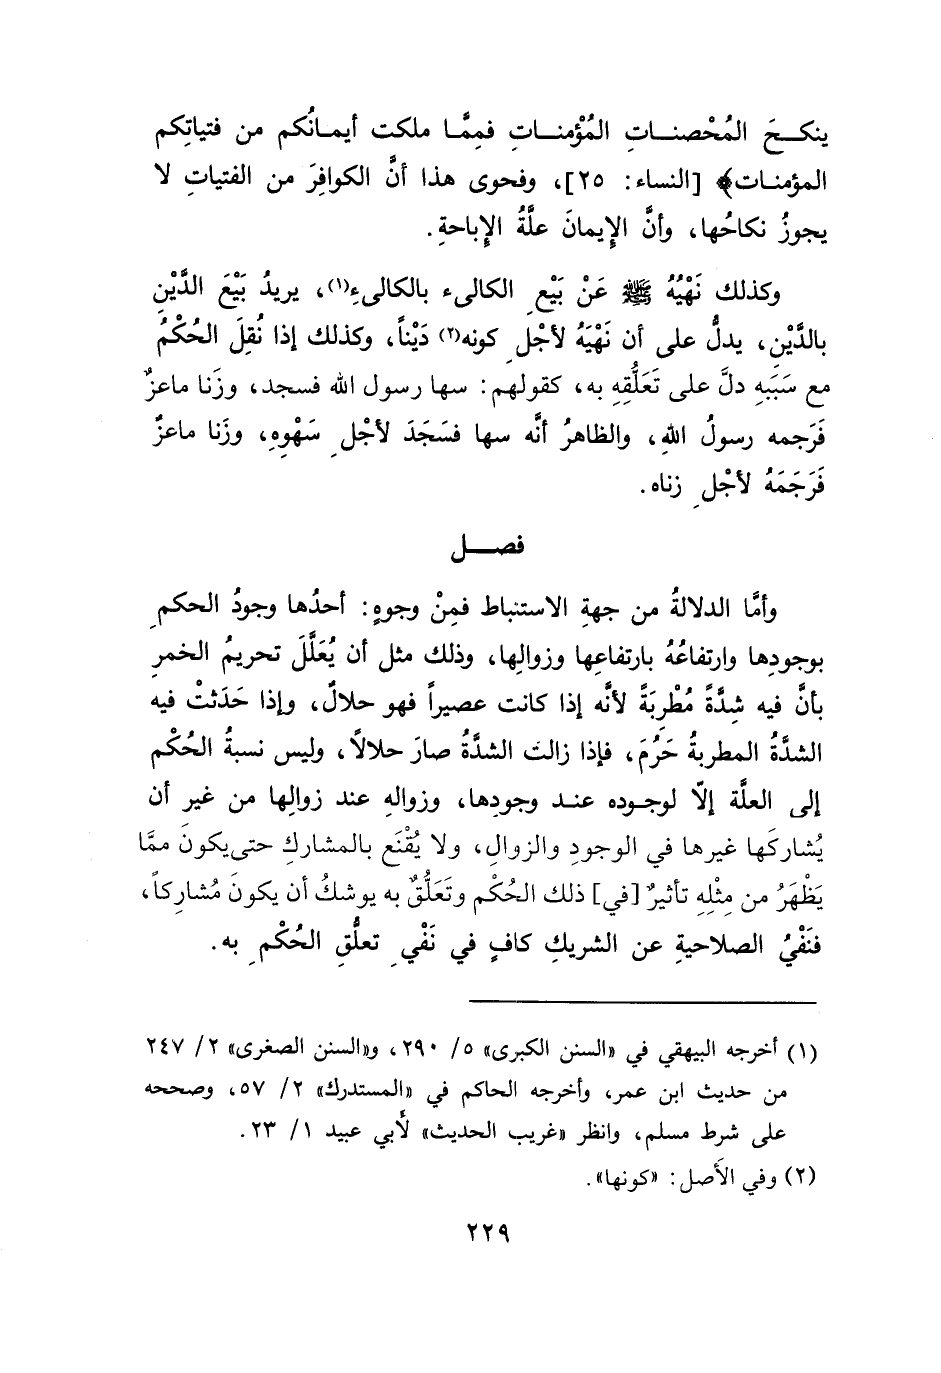 ينكـحَ المُحْصنـاتِ المُؤْمنـاتِ فمِمَّـا ملكت أيمـانُكم من فتياتِكم
المؤمنـات﴾ [النساء: ٢٥]، وفحوى هذا أنَّ الكوافِرَ من الفتياتِ لا
يجوزُ نكاحُها، وأنَّ الإيمانَ علَّةُ الإباحةِ.
وكذلك نَهْيُهُ ﷺ عَنْ بَيْعِ الكالىء بالكالىءِ(١)، يريدُ بَيْعَ الدَّيْنِ
بالدَّيْنِ، يدلُّ على أن نَهْيَهُ لأجْلِ كونه(٢) دَيْناً، وكذلك إذا نُقِلَ الحُكْمُ
مع سَبَبهِ دلَّ على تَعَلُّقِهِ به، كقولهم: سها رسول الله فسجد، وزَنا ماعزٌ
فَرَجمه رسولُ اللهِ، والظاهرُ أنَّه سها فسَجَدَ لأجْلِ سَهْوِهِ، وزَنا ماعزٌ
فَرَجَمَهُ لأجْلِ زناه.
فصـــل
وأمَّا الدلالةُ من جهةِ الاستنباط فمِنْ وجوهٍ: أحدُها وجودُ الحكمِ
بوجودِها وارتفاعُهُ بارتفاعِها وزوالِها، وذلك مثل أن يُعَلَّلَ تحريمُ الخمرِ
بأنَّ فيه شِدَّةً مُطْرِبَةً لأنَّه إذا كانت عصيراً فهو حلالٌ، وإذا حَدَثتْ فيه
الشدَّةُ المطربةُ حَرُمَ، فإذا زالت الشدَّةُ صارَ حلالاً، وليس نسبةُ الحُكْمِ
إلى العلَّة إلّا لوجـوده عنـد وجودِها، وزوالهِ عند زوالِها من غير أن
يُشاركَها غيرها في الوجودِ والزوالِ، ولا يُقْنَع بالمشاركِ حتى يكونَ ممَّا
يَظْهَرُ من مِثْلِهِ تأثيرٌ [في] ذلك الحُكْم وتَعَلُّقٌ به يوشكُ أن يكونَ مُشارِكاً،
فنَفْيُ الصلاحيةِ عن الشريكِ كافٍ في نَفْيِ تعلُّقِ الحُكْمِ به.
(١) أخرجه البيهقي في «السنن الكبرى» ٥/ ٢٩٠، و«السنن الصغرى» ٢/ ٢٤٧
من حديث ابن عمر، وأخرجه الحاكم في «المستدرك» ٢/ ٥٧، وصححه
على شرط مسلم، وانظر «غريب الحديث» لأبي عبيد ١/ ٢٣.
(٢) وفي الأصل: «كونها».
٢٢٩